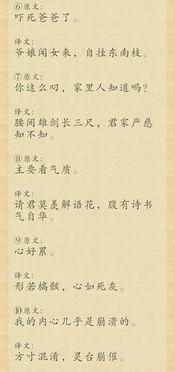 ⑥原文：
吓死爸爸了。
译文：
爷娘闻女来，自挂东南枝。
⑦原文：
你这么叼，家里人知道吗？
译文：
腰间雄剑长三尺，君家严慈
知不知。
⑧原文：
主要看气质。
译文：
请君莫羡解语花，腹有诗书
气自华。
⑨原文：
心好累。
译文：
形若槁骸，心如死灰。
⑩原文：
我的内心几乎是崩溃的。
译文：
方寸混淆，灵台崩催。